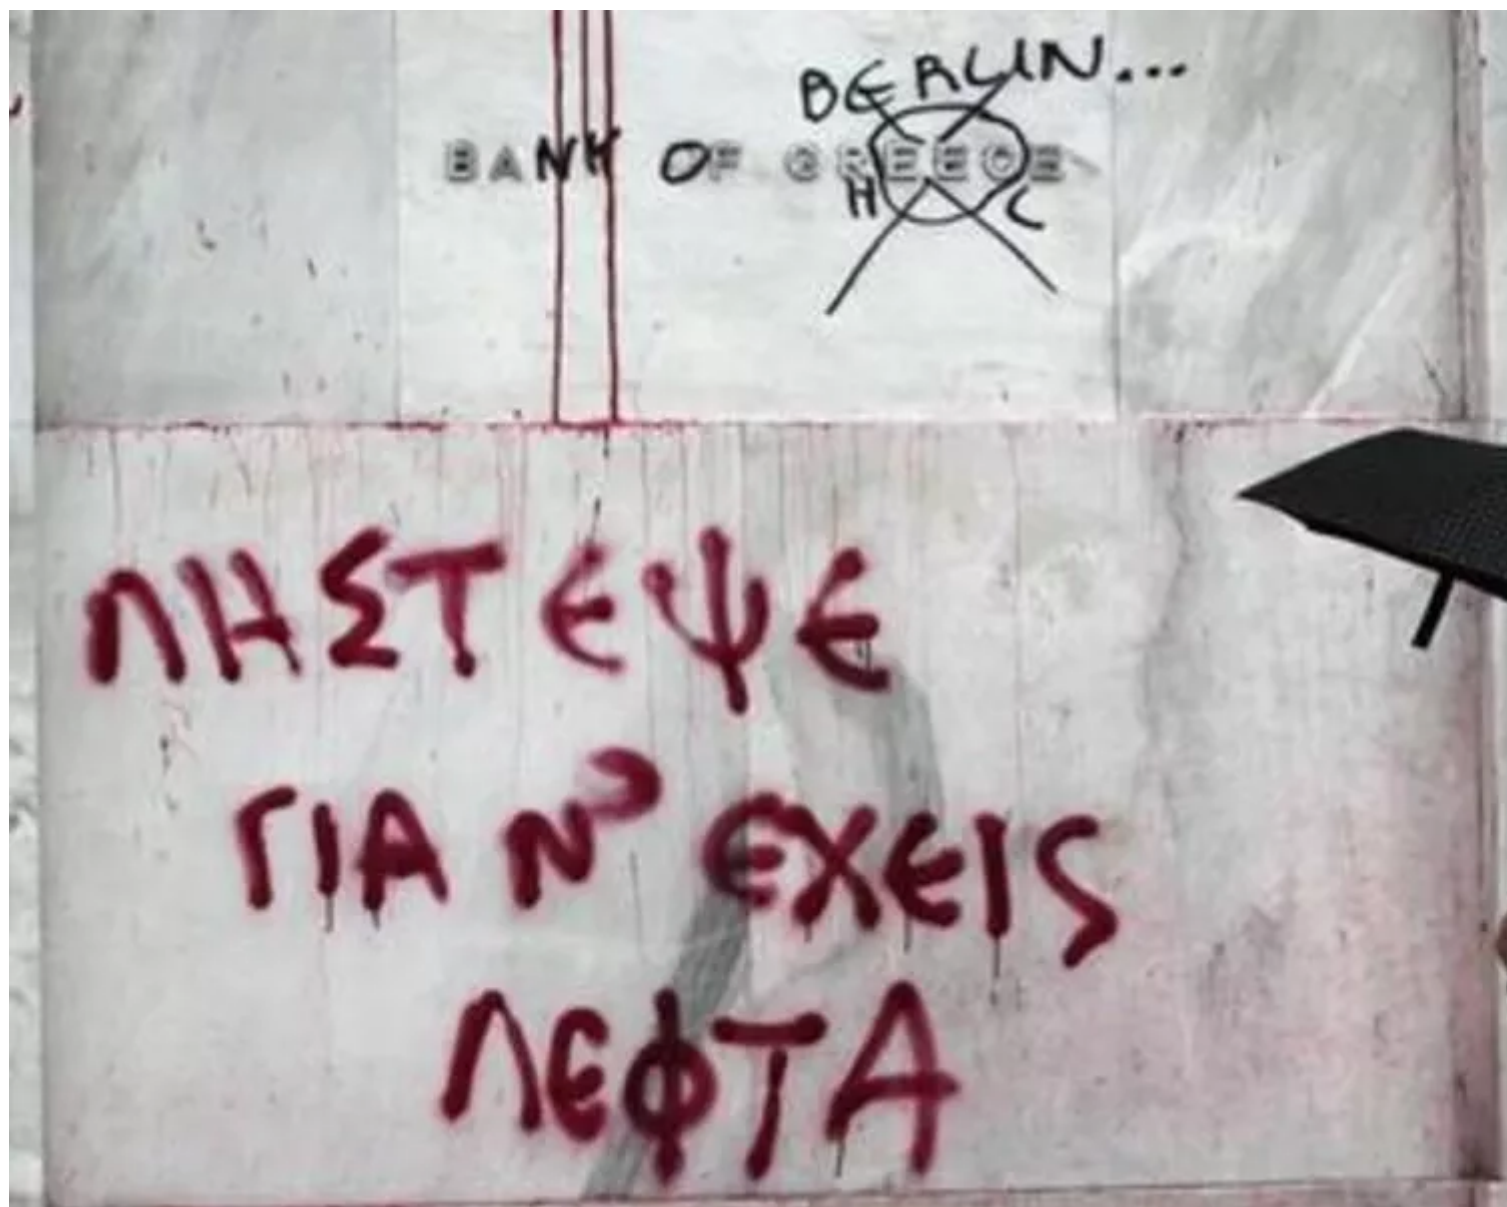 BERLIN...
BANK OF GREECE
H C
ΛΗΣΤΕΨΕ
ΓΙΑ Ν' ΕΧΕΙΣ
ΛΕΦΤΑ